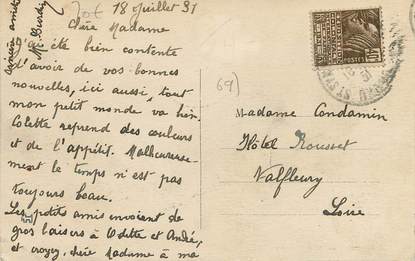 70f
18 Juillet 31
Chère Madame
J'ai été bien contente
d'avoir de vos bonnes
nouvelles, ici aussi, tout
mon petit monde va bien.
Colette reprend des couleurs
et de l'appétit. Malheureuse-
ment le temps n'est pas
toujours beau.
Les petits amis envoient de
gros baisers à Odette et André,
et croyez, chère Madame à ma
sincère amitié
69)
POSTES
Madame Condamin
Hôtel Rousset
Valfleury
Loire